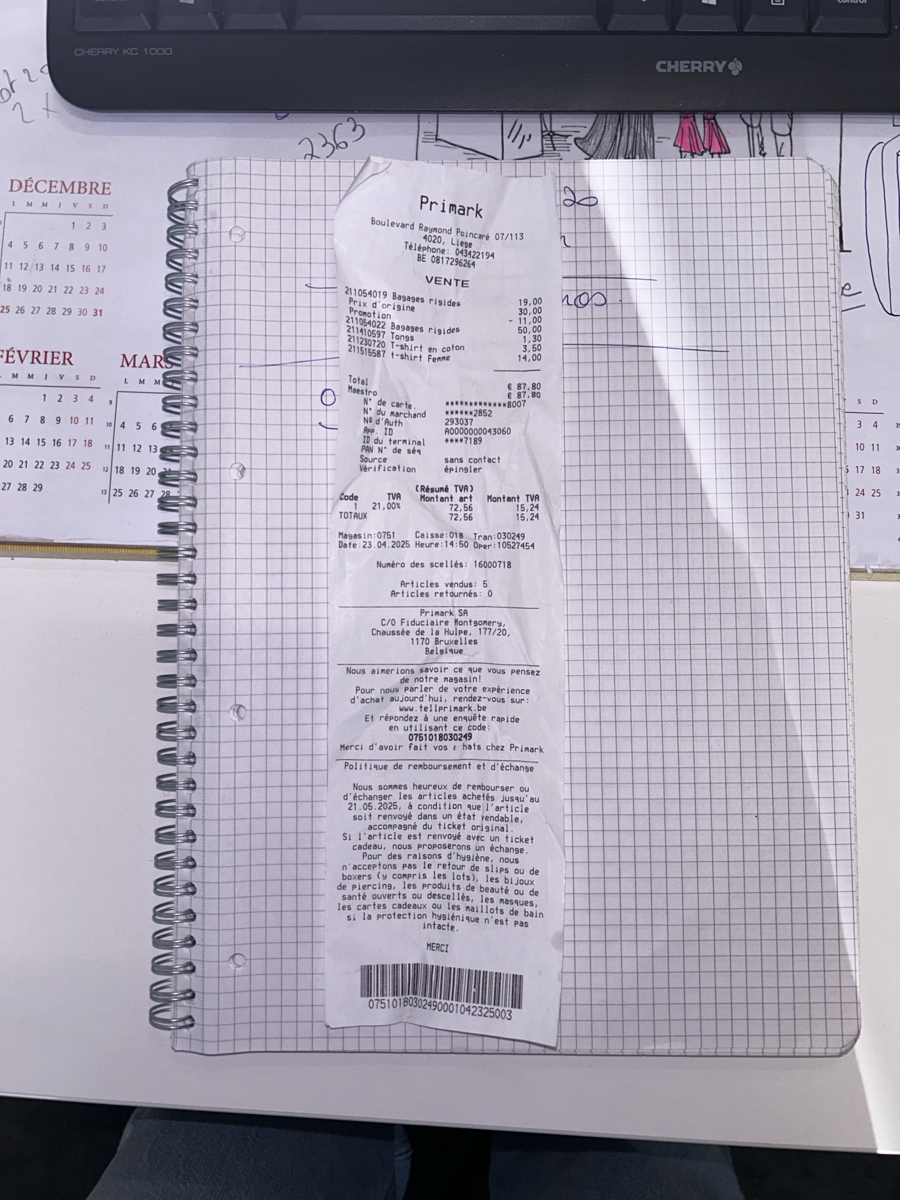 control
control
CHERRY KC 1000
CHERRY
2363
20
nos.
DÉCEMBRE
L M M J V S D
1 2 3
4 5 6 7 8 9 10
11 12 13 14 15 16 17
18 19 20 21 22 23 24
25 26 27 28 29 30 31
FÉVRIER
M M J V S D
1 2 3 4
6 7 8 9 10 11
13 14 15 16 17 18
20 21 22 23 24 25
27 28 29
MARS
L M M
9
10 4 5 6
11 11 12 13
12 18 19 20 21
13 25 26 27 28
S D
3 4
10 11
17 18
24 25
31
Primark
Boulevard Raymond Poincaré 07/113
4020, Liege
Téléphone: 043422194
BE 0817296264
VENTE
211054019 Bagages rigides 19,00
Prix d'origine 30,00
Promotion - 11,00
211054022 Bagages rigides 50,00
211410597 Tongs 1,30
211230720 T-shirt en coton 3,50
211515587 t-shirt Femme 14,00
Total € 87,80
Maestro € 87,80
N° de carte. ************8007
N° du marchand ******2852
Nº d'Auth 293037
App. ID A0000000043060
ID du terminal ****7189
PAN N° de séq
Source sans contact
Vérification épingler
(Résumé TVA)
Code TVA Montant art Montant TVA
1 21,00% 72,56 15,24
TOTAUX 72,56 15,24
Magasin:0751 Caisse:018 Tran:030249
Date:23.04.2025 Heure:14:50 Oper:10527454
Numéro des scellés: 16000718
Articles vendus: 5
Articles retournés: 0
Primark SA
C/O Fiduciaire Montgomery,
Chaussée de la Hulpe, 177/20,
1170 Bruxelles
Belgique
Nous aimerions savoir ce que vous pensez
de notre magasin!
Pour nous parler de votre expérience
d'achat aujourd'hui, rendez-vous sur:
www.tellprimark.be
Et répondez à une enquête rapide
en utilisant ce code:
0751018030249
Merci d'avoir fait vos a hats chez Primark
Politique de remboursement et d'échange
Nous sommes heureux de rembourser ou
d'échanger les articles achetés jusqu'au
21.05.2025, à condition que l'article
soit renvoyé dans un état vendable,
accompagné du ticket original.
Si l'article est renvoyé avec un ticket
cadeau, nous proposerons un échange.
Pour des raisons d'hygiène, nous
n'acceptons pas le retour de slips ou de
boxers (y compris les lots), les bijoux
de piercing, les produits de beauté ou de
santé ouverts ou descellés, les masques,
les cartes cadeaux ou les maillots de bain
si la protection hygiénique n'est pas
intacte.
MERCI
07510180302490001042325003